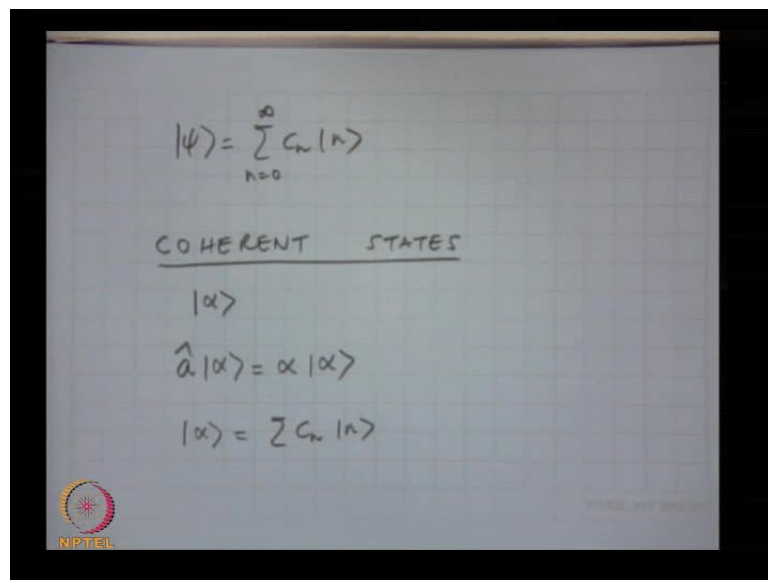 |ψ⟩ = ∑_{n=0}^{∞} c_n |n⟩
COHERENT STATES
|α⟩
â |α⟩ = α |α⟩
|α⟩ = ∑ c_n |n⟩
NPTEL